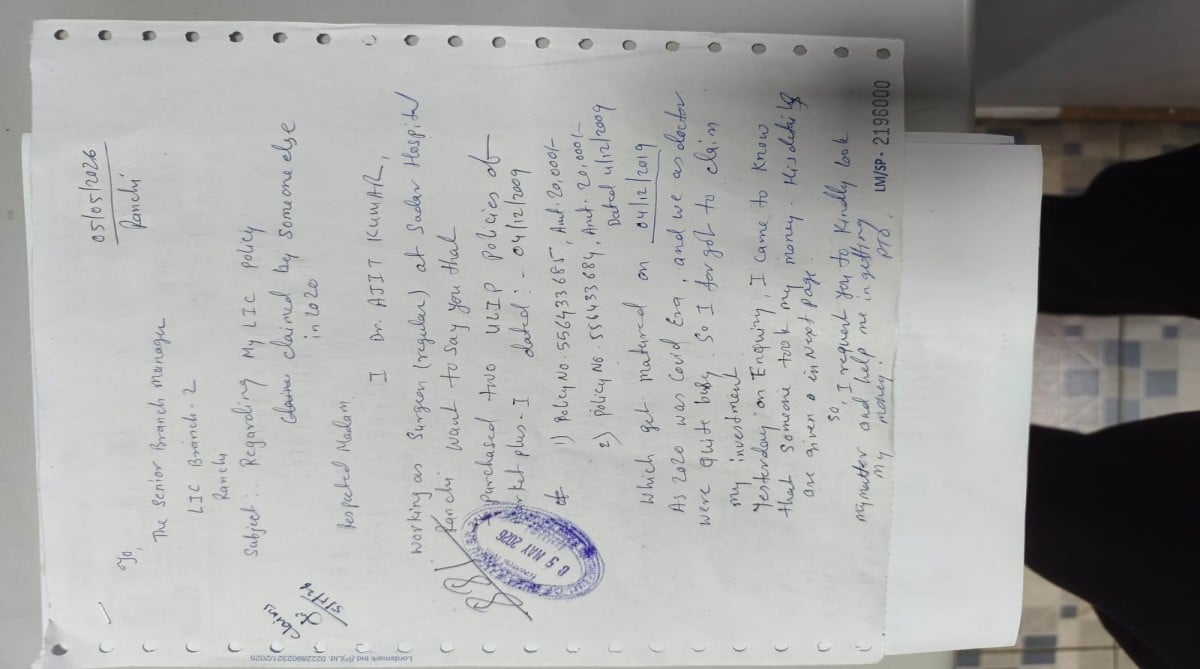 05/05/2026
Ranchi
To,
The Senior Branch Manager
LIC Branch-2
Ranchi
Subject: Regarding My LIC policy
claimed by someone else
in 2020
Respected Madam.
I Dr. AJIT KUMAR,
working as Surgeon (regular) at Sadar Hospital
Ranchi want to say you that
purchased two ULIP policies of
market plus-I dated :- 04/12/2009
1) Policy No. 556433685, Amt. 20,000/-
2) policy No. 556433684, Amt. 20,000/-
Dated 4/12/2009
which get matured on 04/12/2019
As 2020 was Covid Era, and we as doctor
were quite busy. So I forgot to claim
my investment.
Yesterday on Enquiry, I came to know
that someone took my money. His details
are given in Next page.
So, I request you to kindly look
my matter and help me in getting
my money.
PTO.
Claims
05 MAY 2026
LM/SP - 2196000
Lordsmark Ind (P)Ltd. 022286902321/2025